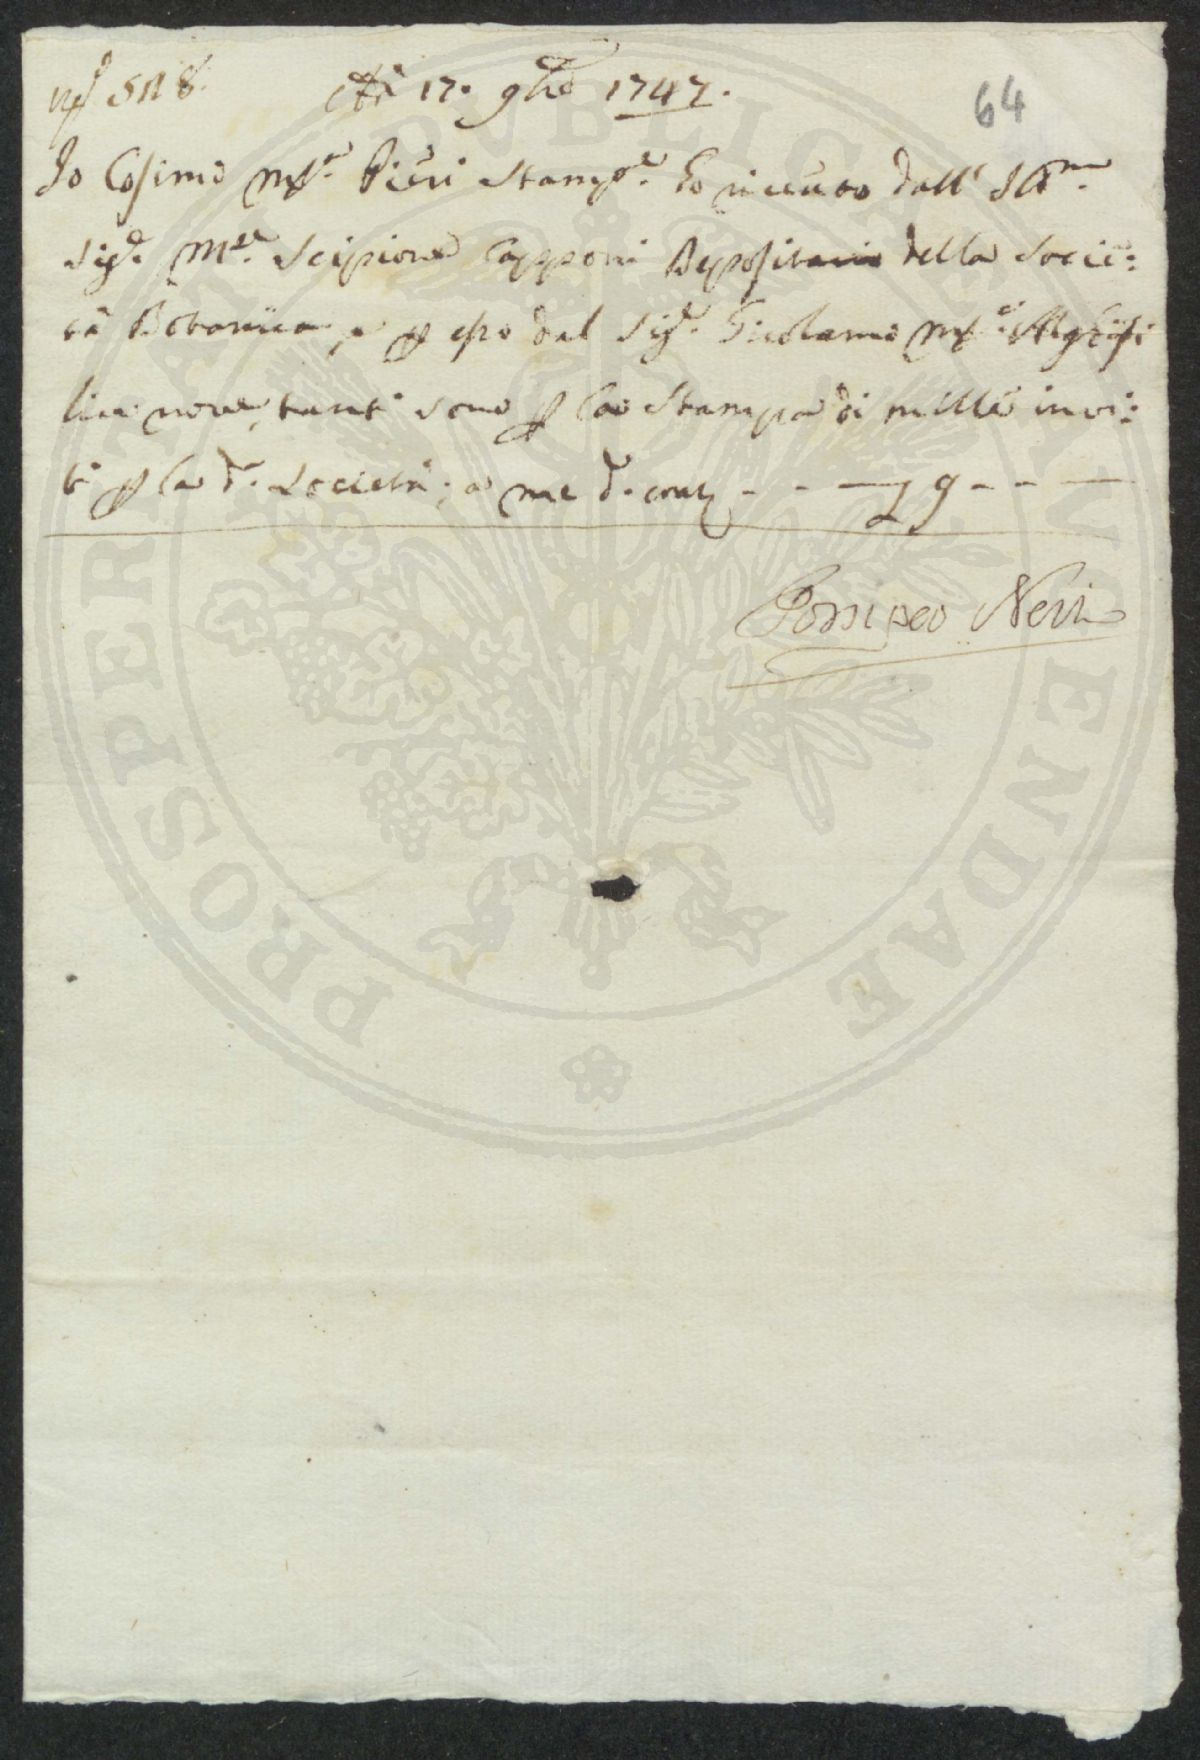 518.
Adì 17. 9bre 1747.
64
Io Cosimo Mª. Pieri Stampre. ho riceuto dall' Illmo.
Sigre. Mse. Scipione Capponi Depositario della Socie:
tà Botanica, e p esso dal Sigre. Girolamo Mª.
lire nove, tanti sono p la Stampa di mille invi:
ti p la da. Società; a me d. conti - - - 9 - - -
Pompeo Neri
PROSPERITATI PUBLICAE AUGENDAE